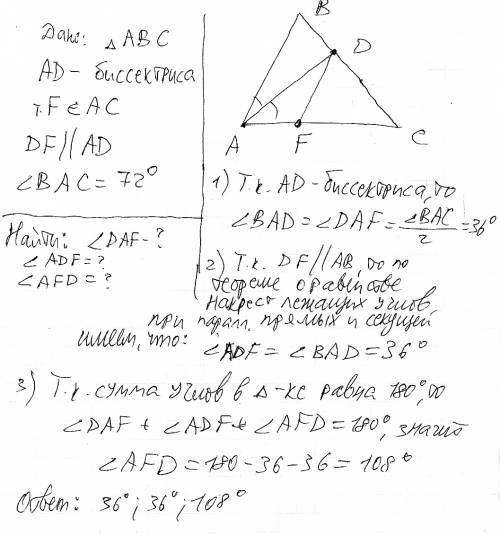 Дано: △ ABC
AD - биссектриса
т. F ∈ AC
DF // AD
∠BAC = 72°
Найти: ∠DAF - ?
∠ADF = ?
∠AFD = ?
B
D
A
F
C
1) Т.к. AD - биссектриса, то
∠BAD = ∠DAF = ∠BAC/2 = 36°
2) Т.к. DF // AB, то по
теореме о равенстве
накрест лежащих углов,
при парал. прямых и секущей
имеем, что:
∠ADF = ∠BAD = 36°
3) Т.к. сумма углов в △-ке равна 180°, то
∠DAF + ∠ADF + ∠AFD = 180°, значит
∠AFD = 180 - 36 - 36 = 108°
Ответ: 36°; 36°; 108°